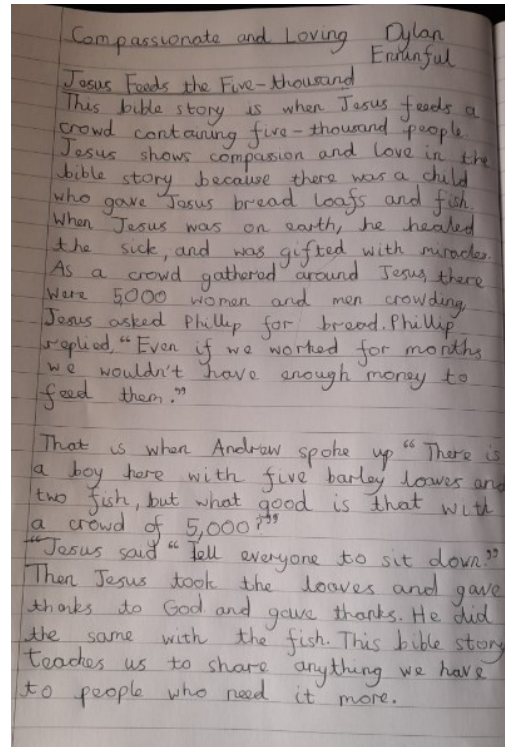 Compassionate and Loving Dylan
Jesus Feeds the Five-thousand
This bible story is when Jesus feeds a
crowd containing five-thousand people.
Jesus shows compassion and love in the
bible story because there was a child
who gave Jesus bread loafs and fish.
When Jesus was on earth, he healed
the sick, and was gifted with miracles.
As a crowd gathered around Jesus, there
were 5000 women and men crowding,
Jesus asked Phillip for bread. Phillip
replied, “Even if we worked for months
we wouldn't have enough money to
feed them.”
That is when Andrew spoke up “There is
a boy here with five barley loaves and
two fish, but what good is that with
a crowd of 5,000?”
“Jesus said “Tell everyone to sit down.”
Then Jesus took the loaves and gave
thanks to God and gave thanks. He did
the same with the fish. This bible story
teaches us to share anything we have
to people who need it more.